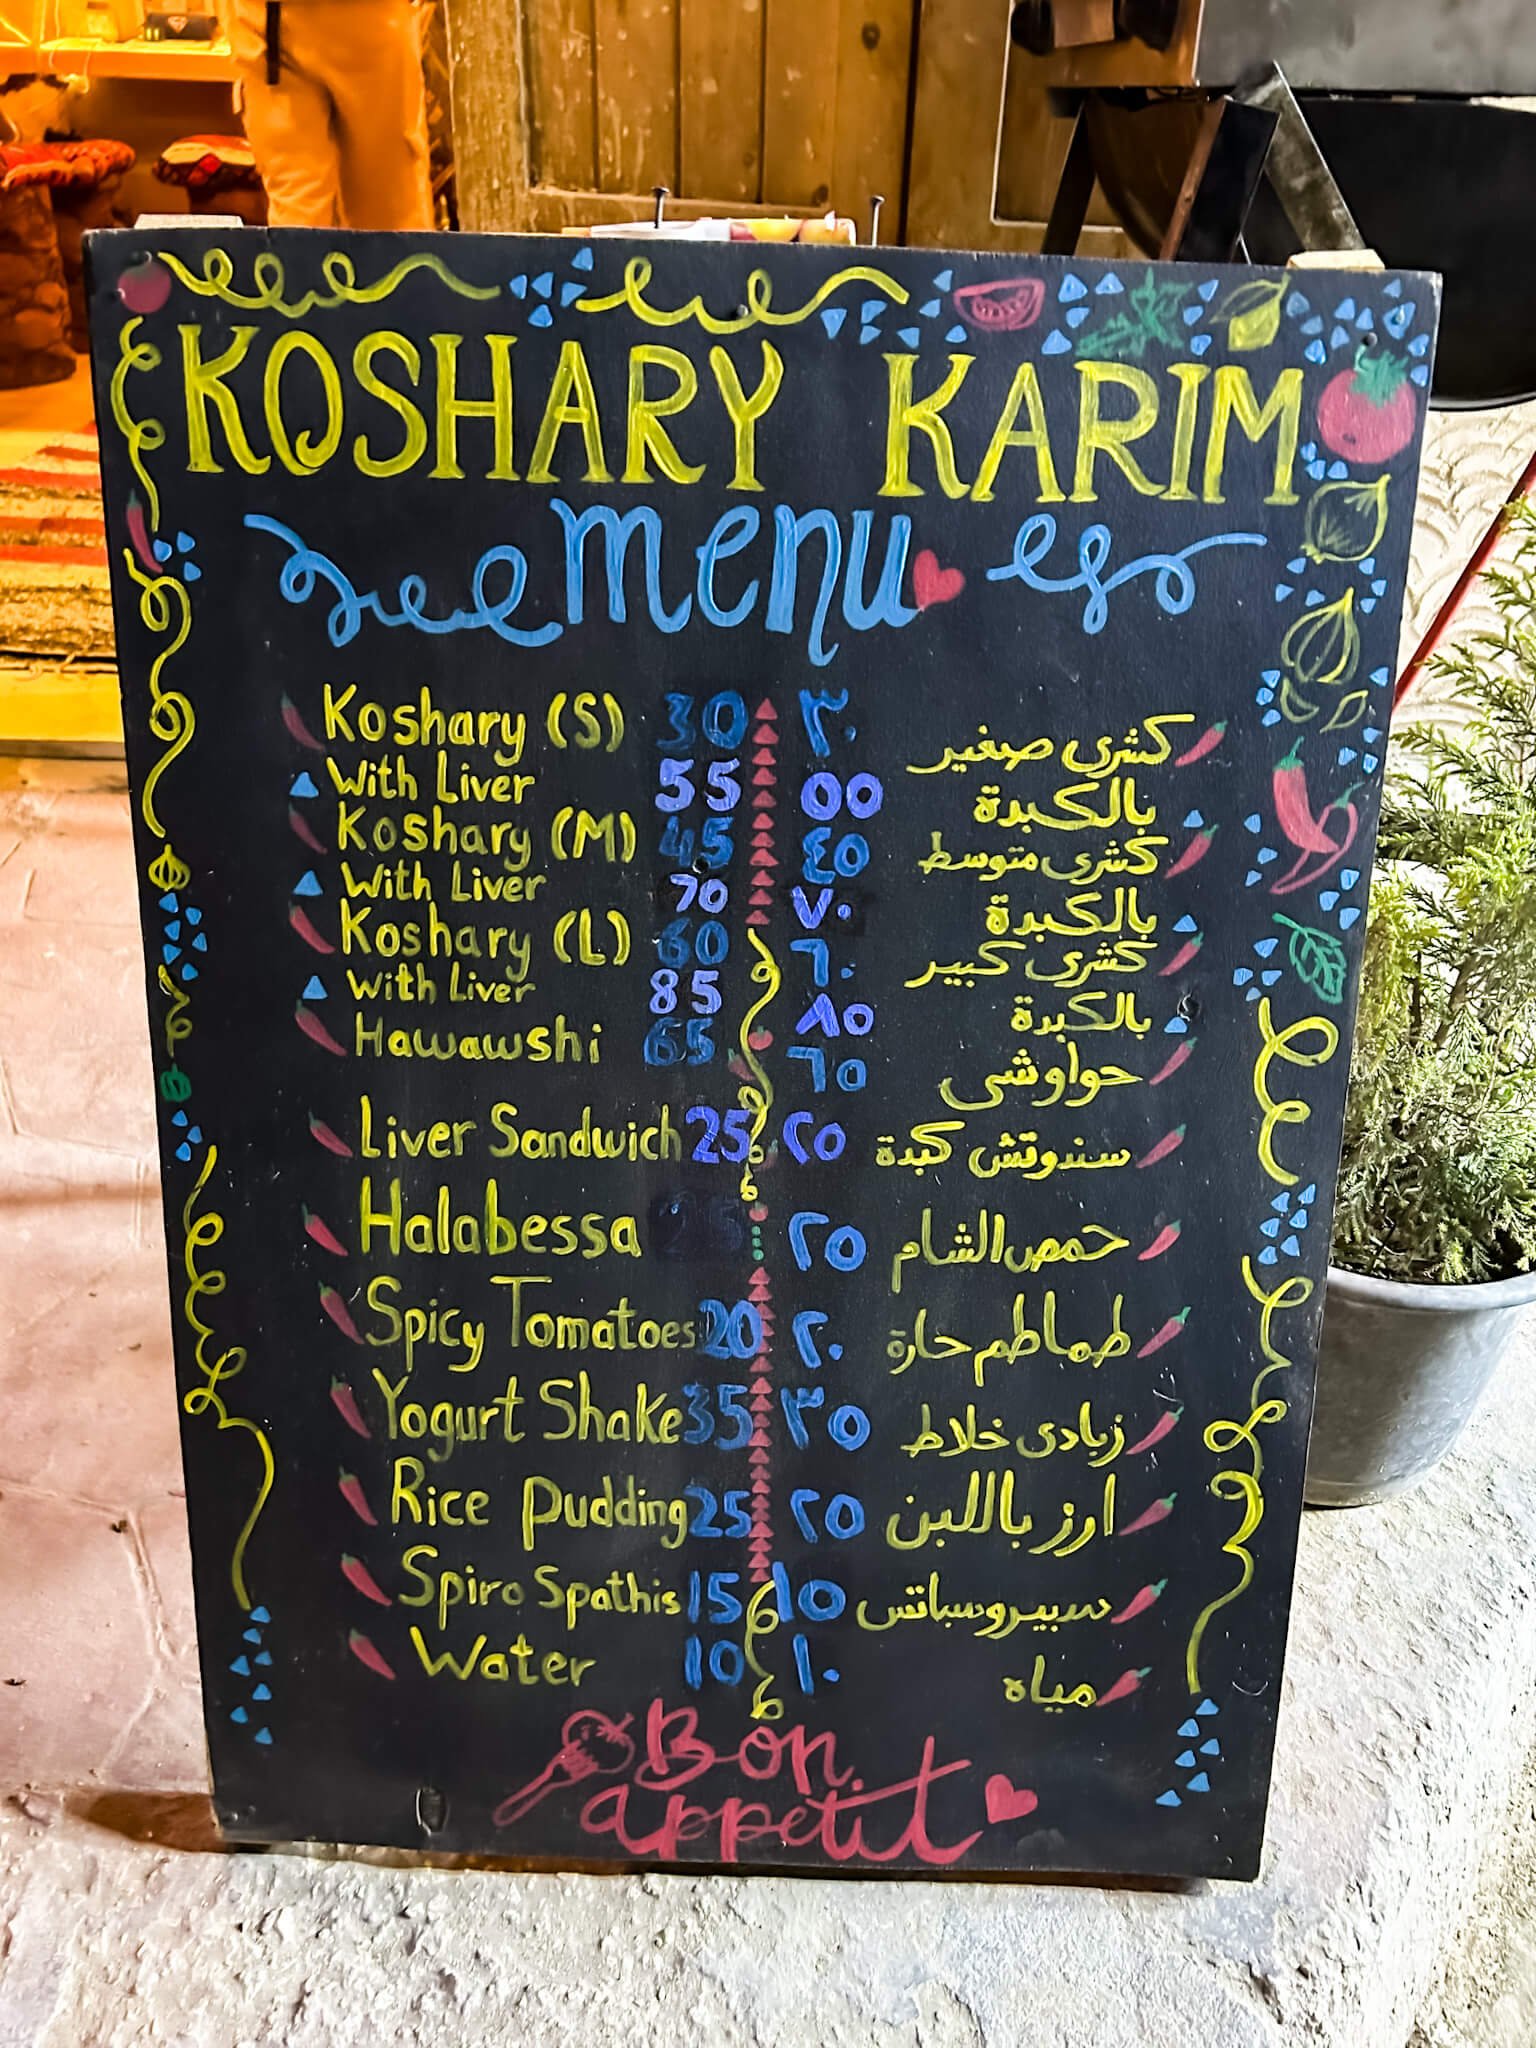 KOSHARY KARIM
menu
Koshary (S) 30 ٣٠ كشرى صغير
With Liver 55 ٥٥ بالكبدة
Koshary (M) 45 ٤٥ كشرى متوسط
With Liver 70 ٧٠ بالكبدة
Koshary (L) 60 ٦٠ كشرى كبير
With Liver 85 ٨٥ بالكبدة
Hawawshi 65 ٦٥ حواوشى
Liver Sandwich 25 ٢٥ سندوتش كبدة
Halabessa 25 ٢٥ حمص الشام
Spicy Tomatoes 20 ٢٠ طماطم حارة
Yogurt Shake 35 ٣٥ زبادى خلاط
Rice Pudding 25 ٢٥ ارز باللبن
Spiro Spathis 15 ١٥ سبيروسباتس
Water 10 ١٠ مياه
Bon
appetit